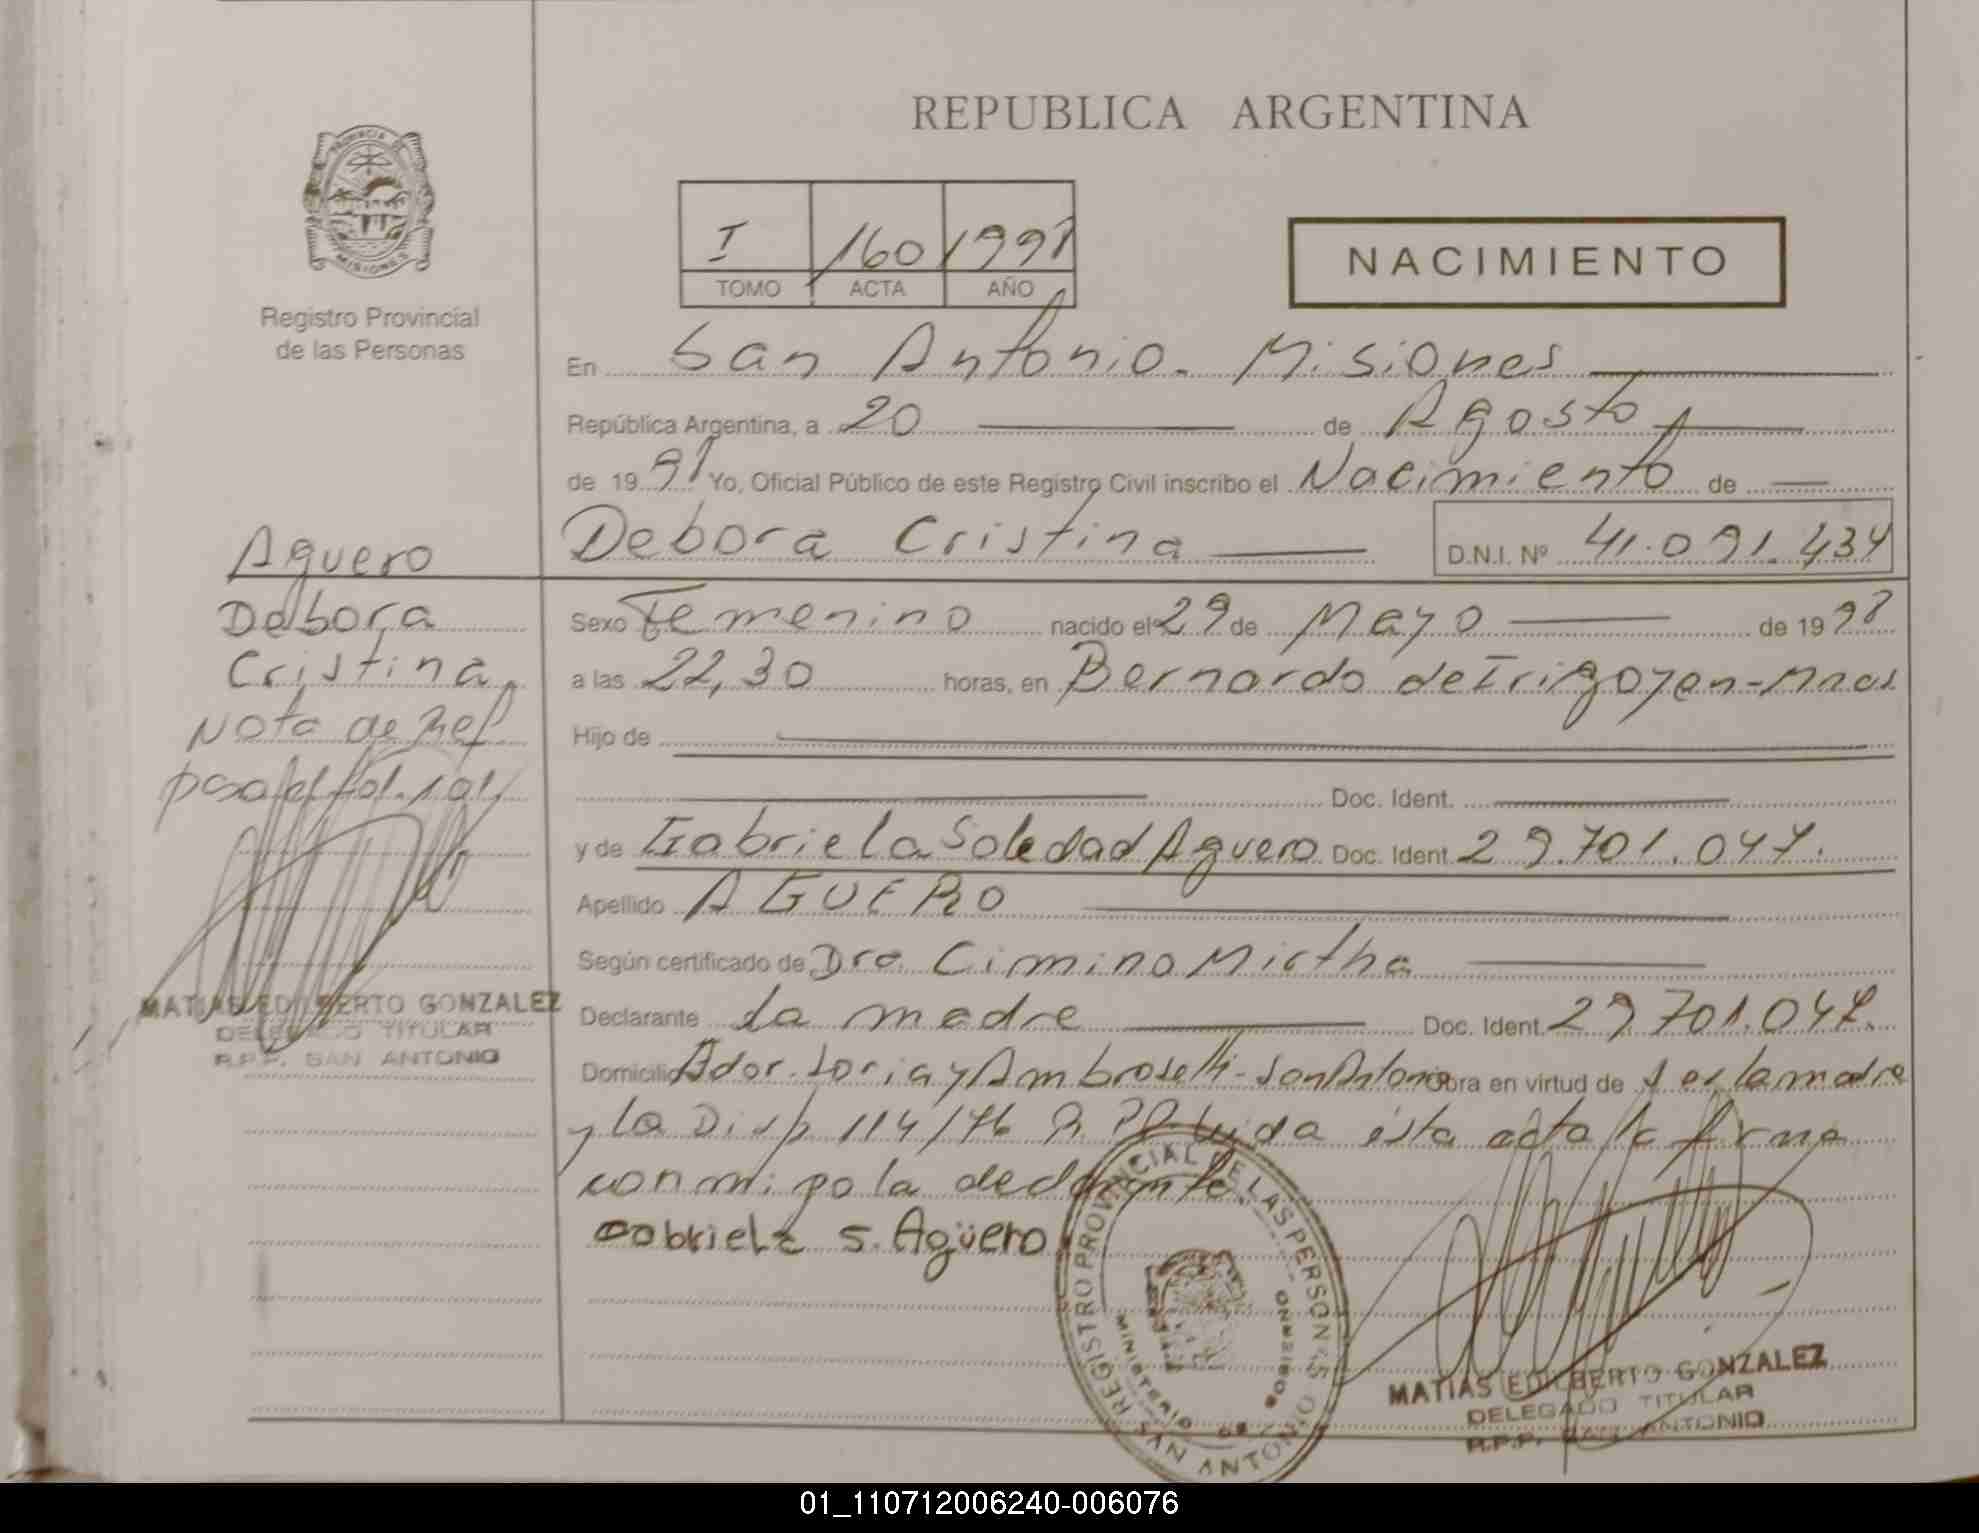 REPUBLICA ARGENTINA
PROVINCIA DE
MISIONES
Registro Provincial
de las Personas
I 160 1998
TOMO ACTA AÑO
NACIMIENTO
En San Antonio - Misiones
República Argentina, a 20 de Agosto
de 1998 Yo, Oficial Público de este Registro Civil inscribo el Nacimiento de
Debora Cristina D.N.I. Nº 41.091.434
Aguero
Debora
Cristina
Nota de Ref.
MATIAS EDILBERTO GONZALEZ
DELEGADO TITULAR
R.P.P. SAN ANTONIO
Sexo Femenino nacido el 29 de Mayo de 1998
a las 22,30 horas, en Bernardo de Irigoyen - Mnes
Hijo de
Doc. Ident.
y de Gabriela Soledad Aguero Doc. Ident. 29.701.047.
Apellido AGUERO
Según certificado de Dra. Cimino Mirtha
Declarante La madre Doc. Ident. 29.701.047.
Domicilio Ador. Soria y Ambrosetti - San Antonio Obra en virtud de ser la madre
y la Disp. 114/76 Leida ésta acta la firma
conmigo la declarante
Gabriela S. Agüero
REGISTRO PROVINCIAL DE LAS PERSONAS
MINISTERIO DE GOBIERNO
SAN ANTONIO
MATIAS EDILBERTO GONZALEZ
DELEGADO TITULAR
R.P.P. SAN ANTONIO
01_110712006240-006076